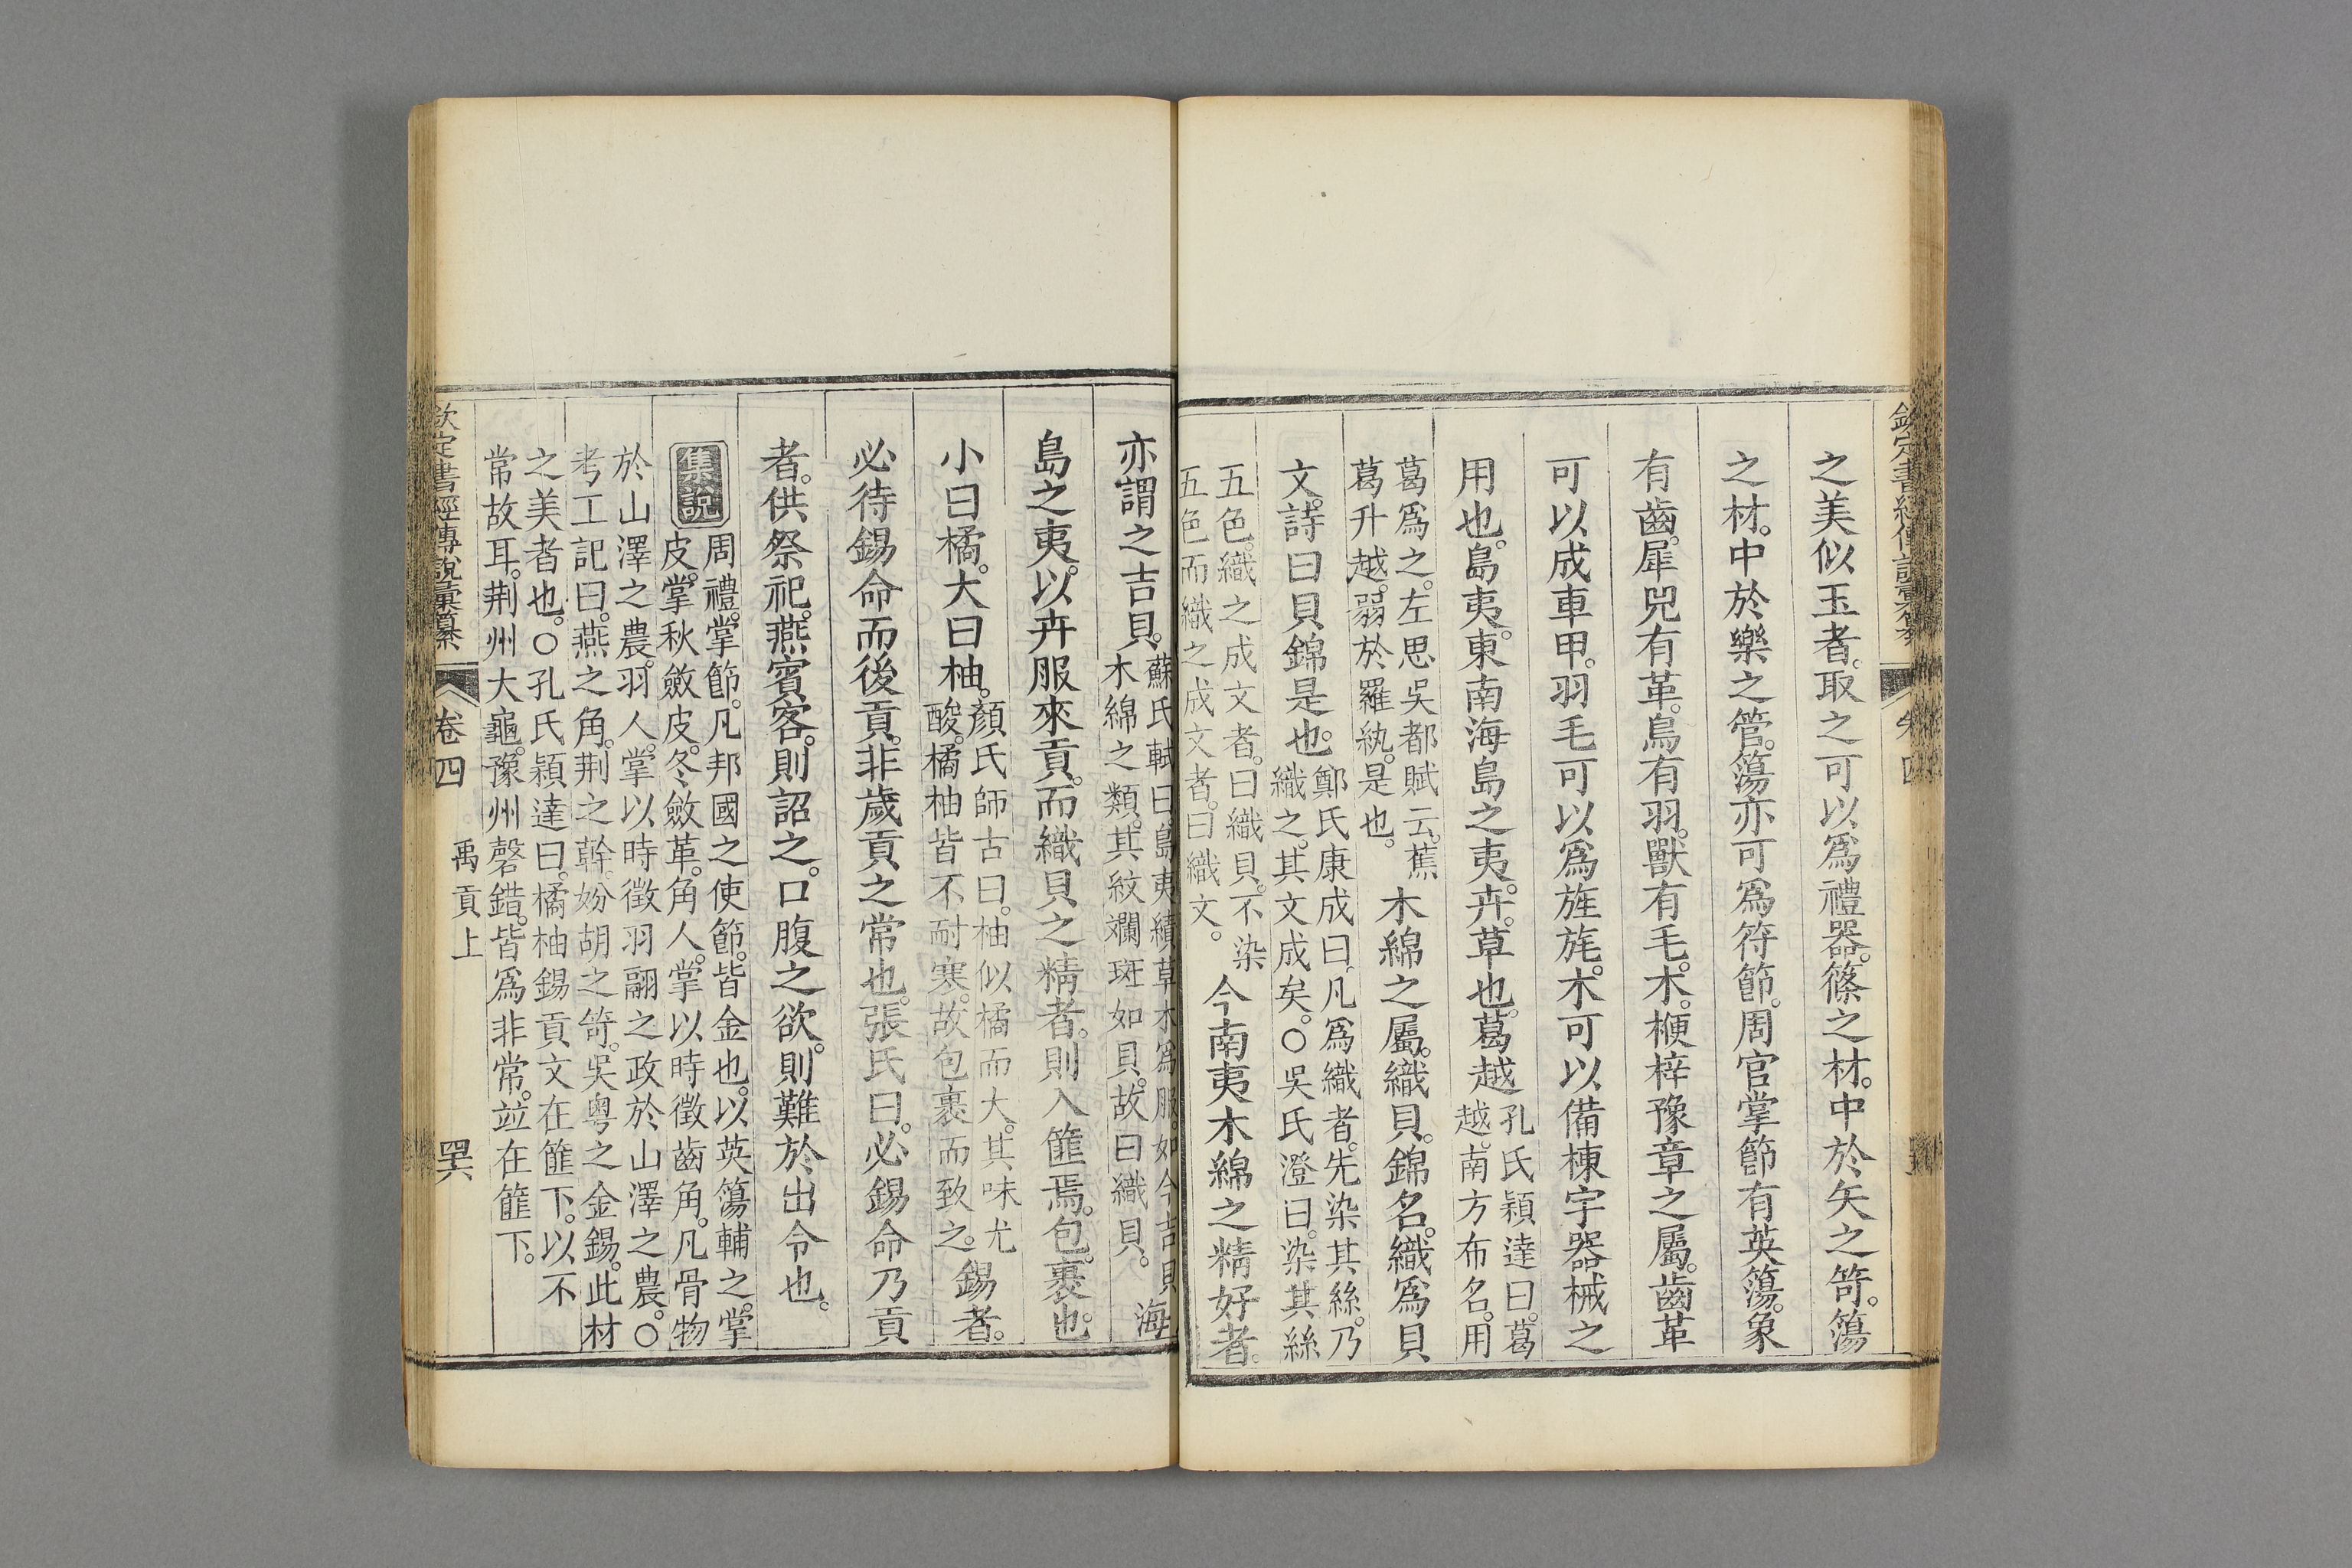 之美似玉者。取之可以爲禮器。篠之材。中於矢之笴。簜
之材。中於樂之管。簜亦可爲符節。周官掌節有英簜。象
有齒。犀兕有革。鳥有羽。獸有毛。木。楩梓豫章之屬。齒革
可以成車甲。羽毛可以爲旌旄。木可以備棟宇器械之
用也。島夷。東南海島之夷。卉。草也。葛越
孔氏穎達曰。葛
越。南方布名。用
葛爲之。左思吳都賦云。蕉
葛升越。弱於羅紈。是也。
木綿之屬。織貝。錦名。織爲貝
文。詩曰貝錦是也。
鄭氏康成曰。凡爲織者。先染其絲。乃
織之。其文成矣。○吳氏澄曰。染其絲
五色。織之成文者。曰織貝。不染
五色而織之成文者。曰織文。
今南夷木綿之精好者。
亦謂之吉貝。
蘇氏軾曰。島夷績草木爲服。如今吉貝
木綿之類。其紋斕斑如貝。故曰織貝。
海
島之夷。以卉服來貢。而織貝之精者。則入篚焉。包。裹也。
小曰橘。大曰柚。
顏氏師古曰。柚似橘而大。其味尤
酸。橘柚皆不耐寒。故包裹而致之。
錫者。
必待錫命而後貢。非歲貢之常也。張氏曰。必錫命乃貢
者。供祭祀。燕賓客。則詔之。口腹之欲。則難於出令也。
集說
周禮。掌節。凡邦國之使節。皆金也。以英簜輔之。掌
皮。掌秋斂皮。冬斂革。角人。掌以時徵齒角。凡骨物
於山澤之農。羽人。掌以時徵羽翮之政於山澤之農。○
考工記曰。燕之角。荆之幹。妢胡之笴。吳粤之金錫。此材
之美者也。○孔氏穎達曰。橘柚錫貢文在篚下。以不
常故耳。荆州大龜。豫州磬錯。皆爲非常。竝在篚下。
欽定書經傳說彙纂
卷四
禹貢上
四六